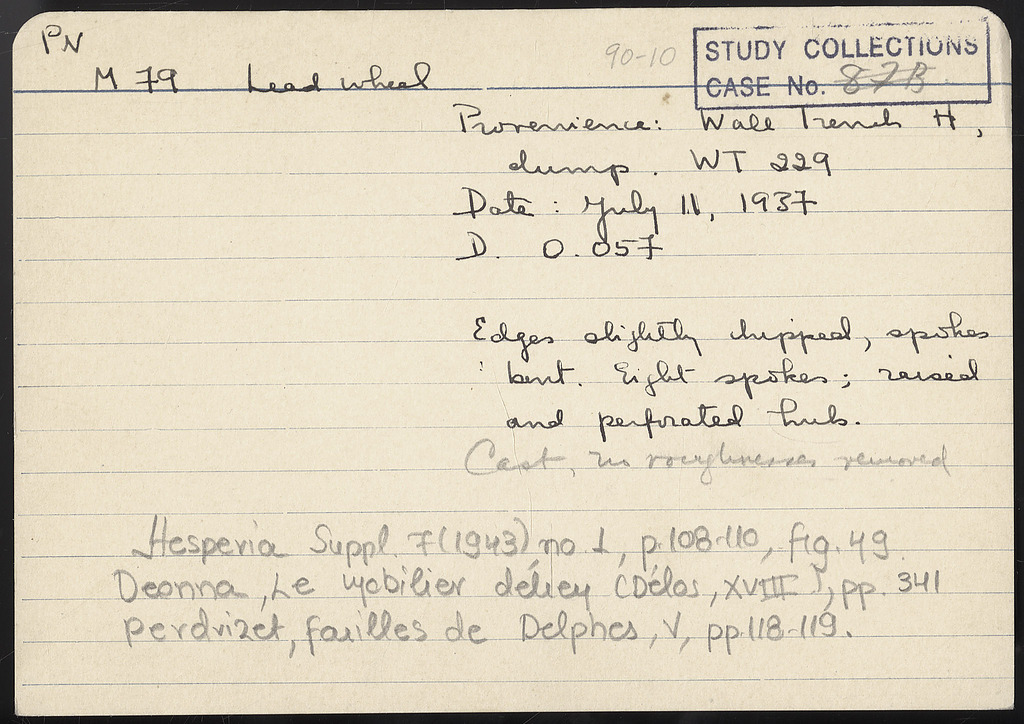 PN
90-10
STUDY COLLECTIONS
CASE No. 87B
M 79 Lead wheel
Provenience: Wall Trench H,
dump. WT 229
Date: July 11, 1937
D. 0.057
Edges slightly chipped, spokes
bent. Eight spokes; raised
and perforated hub.
Cast, no roughnesses removed
Hesperia Suppl. 7 (1943) no 1, p. 108-110, fig. 49
Deonna, Le Mobilier délien (Délos, XVIII), pp. 341
Perdrizet, fouilles de Delphes, V, pp. 118-119.